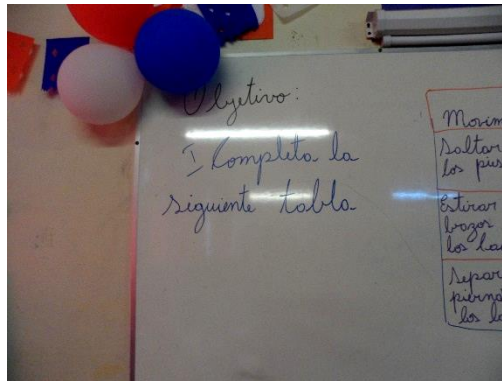 Objetivo:
I Completa la
siguiente tabla
Saltar
los pies
Estirar
brazos
los
Separ
pierna
los